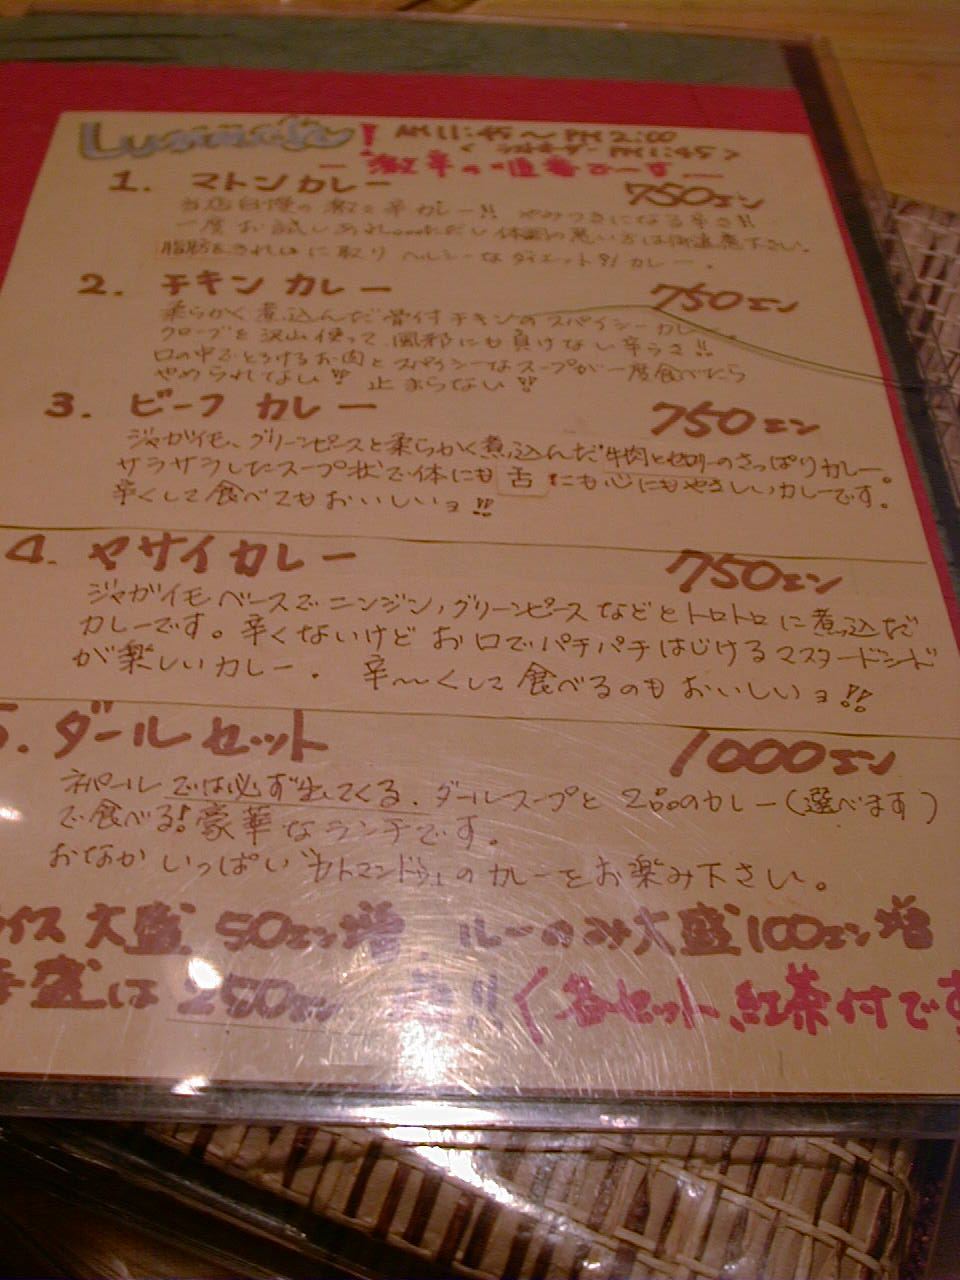 Lunch! AM 11:45〜PM 2:00
< ラストオーダー PM 1:45 >
激辛の順番でーす
1. マトンカレー 750エン
当店自慢の激辛カレー!! やみつきになる辛さ!!
一度お試しあれ 体調の悪い方は御遠慮下さい。
脂肪をきれいに取り ヘルシーなダイエット的カレー。
2. チキンカレー 750エン
柔らかく煮込んだ骨付チキンのスパイシーカレー。
クローブを沢山使って風邪にも負けない辛うさ!!
口の中でとろけるお肉とスパイシーなスープが一度食べたら
やめられてない!! 止まらない!!
3. ビーフカレー 750エン
ジャガイモ、グリーンピースと柔らかく煮込んだ牛肉とセロリーのさっぱりカレー。
サラサラしたスープ状で体にも舌にも心にもやさしいカレーです。
辛くして食べてもおいしいョ!!
4. ヤサイカレー 750エン
ジャガイモベースでニンジン,グリーンピースなどとトロトロに煮込んだ
カレーです。辛くないけどお口でパチパチはじけるマスタードシード
が楽しいカレー. 辛〜〜くして食べるのもおいしいョ!!
5. ダールセット 1000エン
ネパールでは必ず出てくる. ダールスープと 2品のカレー(選べます)
で食べる!豪華なランチです。
おなかいっぱい「カトマンドゥ」のカレーをお楽み下さい。
ライス大盛 50エン増 ルーのみ大盛100エン増
盛は 250エン 増!! (各セット、紅茶付です